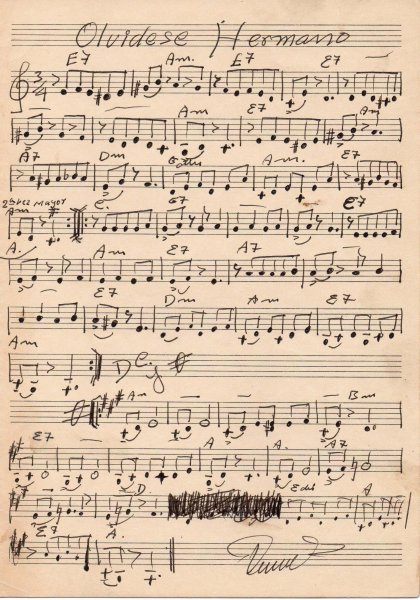 Olvidese Hermano
E7 Am. E7 E7
3/4
Am E7 Am
A7 Dm Am. E7
2ª vez mayor
Am C. G7 E7
A. Am E7 A7
E7 Dm Am E7
Am D.C. y
Am Bm
E7 A A7
D. A
E7 A.